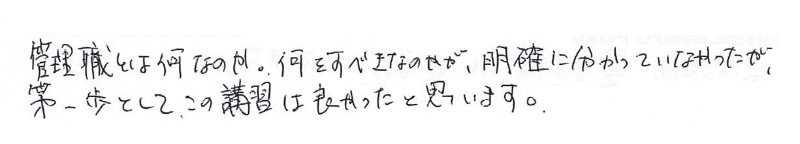 管理職とは何なのか。何をすべきなのかが、明確に分かっていなかったが、
第一歩として、この講習は良かったと思います。